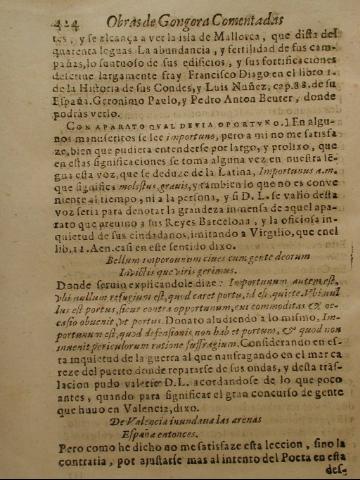 424 Obras de Gongora Comentadas
tes, y se alcança a ver la isla de Mallorca, que dista del
quarenta leguas. La abundancia, y fertilidad de sus cam-
pañas, lo suntuoso de sus edificios, y sus fortificaciones
descriue largamente fray Francisco Diago en el libro 1.
de la Historia de sus Condes, y Luis Nuñez, cap. 88. de su
España. Geronimo Paulo, y Pedro Anton Beuter, donde
podràs verlo.
CON APARATO QVAL DEVIA OPORTVNO.] En algu-
nos manuscritos se lee importuno, pero a mi no me satisfa
ze, bien que pudiera entenderse por largo, y prolixo, que
en estas significaciones se toma alguna vez en nuestra lē-
gua esta voz, que se deduze de la Latina, Importunus a.m.
que significa molestus, grauis, y tambien lo que no es conve
niente al tiempo, ni a la persona, y si D.L. se valio desta
voz seria para denotar la grandeza inmensa de aquel apa-
rato que preuino a sus Reyes Barcelona, y la oficiosa in-
quietud de sus ciudadanos, imitando a Virgilio, que en el
lib. 11. Aen. casi en este sentido dixo.
Bellum importunum ciues cum gente deorum
Inuictisque viris gerimus.
Donde seruio explicandole dize: Importunum autem est,
vbi nullum refugium est, quod caret portu, id est, quiete. Vbi nul
lus est portus, sicut contra opportunum, cui commoditas & oc-
casio obuenit, vt portus. Donato aludiendo a lo mismo, Im-
portunum est, quod defensionis non habet portum, & quod non
inuenit periculorum ratione suffragium. Considerando en es-
ta inquietud de la guerra al que naufragando en el mar ca
reze del puerto donde repararse de sus ondas, y desta tras-
lacion pudo valerse D.L. acordandose de lo que poco
antes, quando para significar el gran concurso de gente
que hauo en Valencia, dixo.
De Valencia inundaua las arenas
España entonces.
Pero como he dicho no me satisfaze esta leccion, sino la
contraria, por ajustarse mas al intento del Poeta en esta
des-